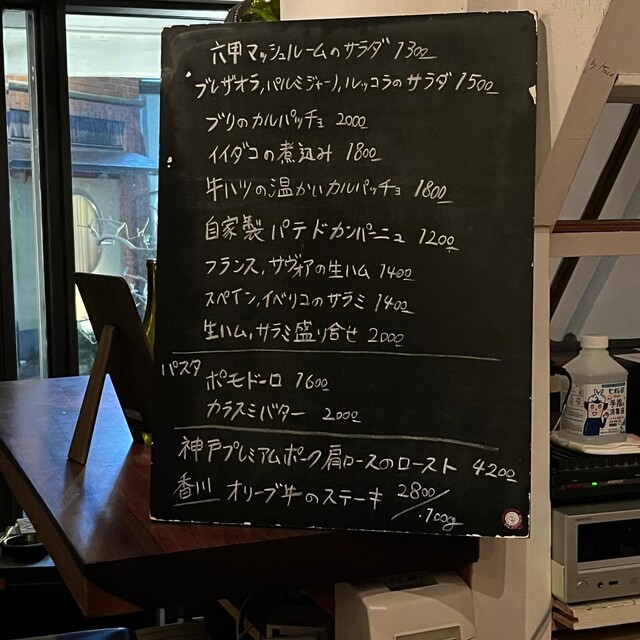 六甲マッシュルームのサラダ 1300
ブレザオラ,パルミジャーノ,ルッコラのサラダ 1500
ブリのカルパッチョ 2000
イイダコの煮込み 1800
牛ハツの温かいカルパッチョ 1800
自家製パテドカンパーニュ 1200
フランス,サヴォアの生ハム 1400
スペイン,イベリコのサラミ 1400
生ハム,サラミ盛り合せ 2000
パスタ
ポモドーロ 1600
カラスミバター 2000
神戸プレミアムポーク肩ロースのロースト 4200
香川 オリーブ牛のステーキ 2800/.100g